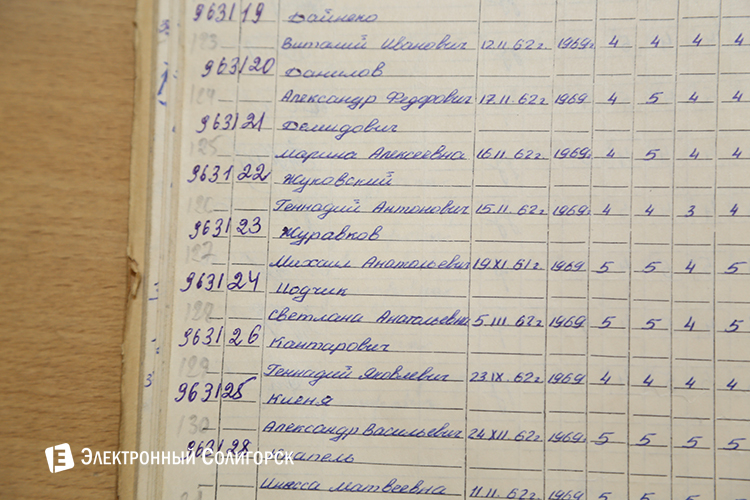 9631 19 Дайнеко
123 Виталий Иванович 12.11.62г 1969г 4 4 4 4
9631 20 Данилов
124 Александр Федорович 17.11.62г 1969 4 5 4 4
9631 21 Демидович
125 Марина Алексеевна 16.11.62г. 1969г 4 5 4 4
9631 22 Жуковский
126 Геннадий Антонович 15.11.62г 1969г 4 4 3 4
9631 23 Журавков
127 Михаил Анатольевич 19.XI.61г 1969 5 5 4 5
9631 24
128 Светлана Анатольевна 5.III.62г 1969 5 5 4 5
9631 26 Кантарович
129 Геннадий Яковлевич 23.IX.62г 1969 4 4 4 4
9631 25 Киеня
130 Александр Васильевич 24.XII.62г 1969г 5 5 5 5
9631 28
Инесса Матвеевна 11.11.62г 1969г 5 5 5 5
Электронный Солигорск